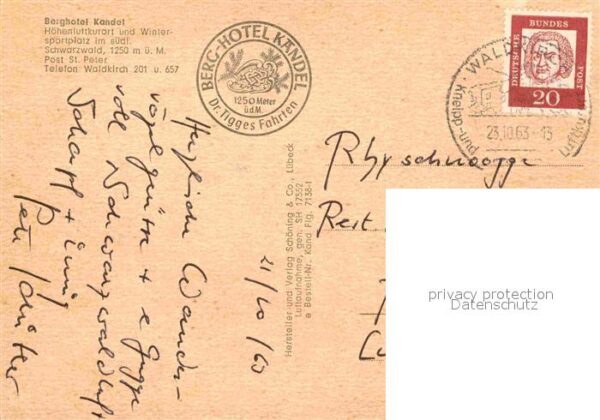 Berghotel Kandel
Höhenluftkurort und Winter-
sportplatz im südl.
Schwarzwald, 1250 m ü. M.
Post St. Peter
Telefon: Waldkirch 201 u. 657
BERG-HOTEL KANDEL
1250 Meter
ü.d.M.
Dr. Tigges Fahrten
DEUTSCHE BUNDESPOST
20
WALD
Kneipp- und
Luftku
23.10.63-13
Herzliche Wander-
vögelgrüsse + e Gugge
voll Schwarzwaldluft
21/10/63
Hersteller und Verlag Schöning & Co., Lübeck
Luftaufnahme, gen. SH 17352
e Bestell-Nr. Kand Flg. 7138-1
Rest.
privacy protection
Datenschutz